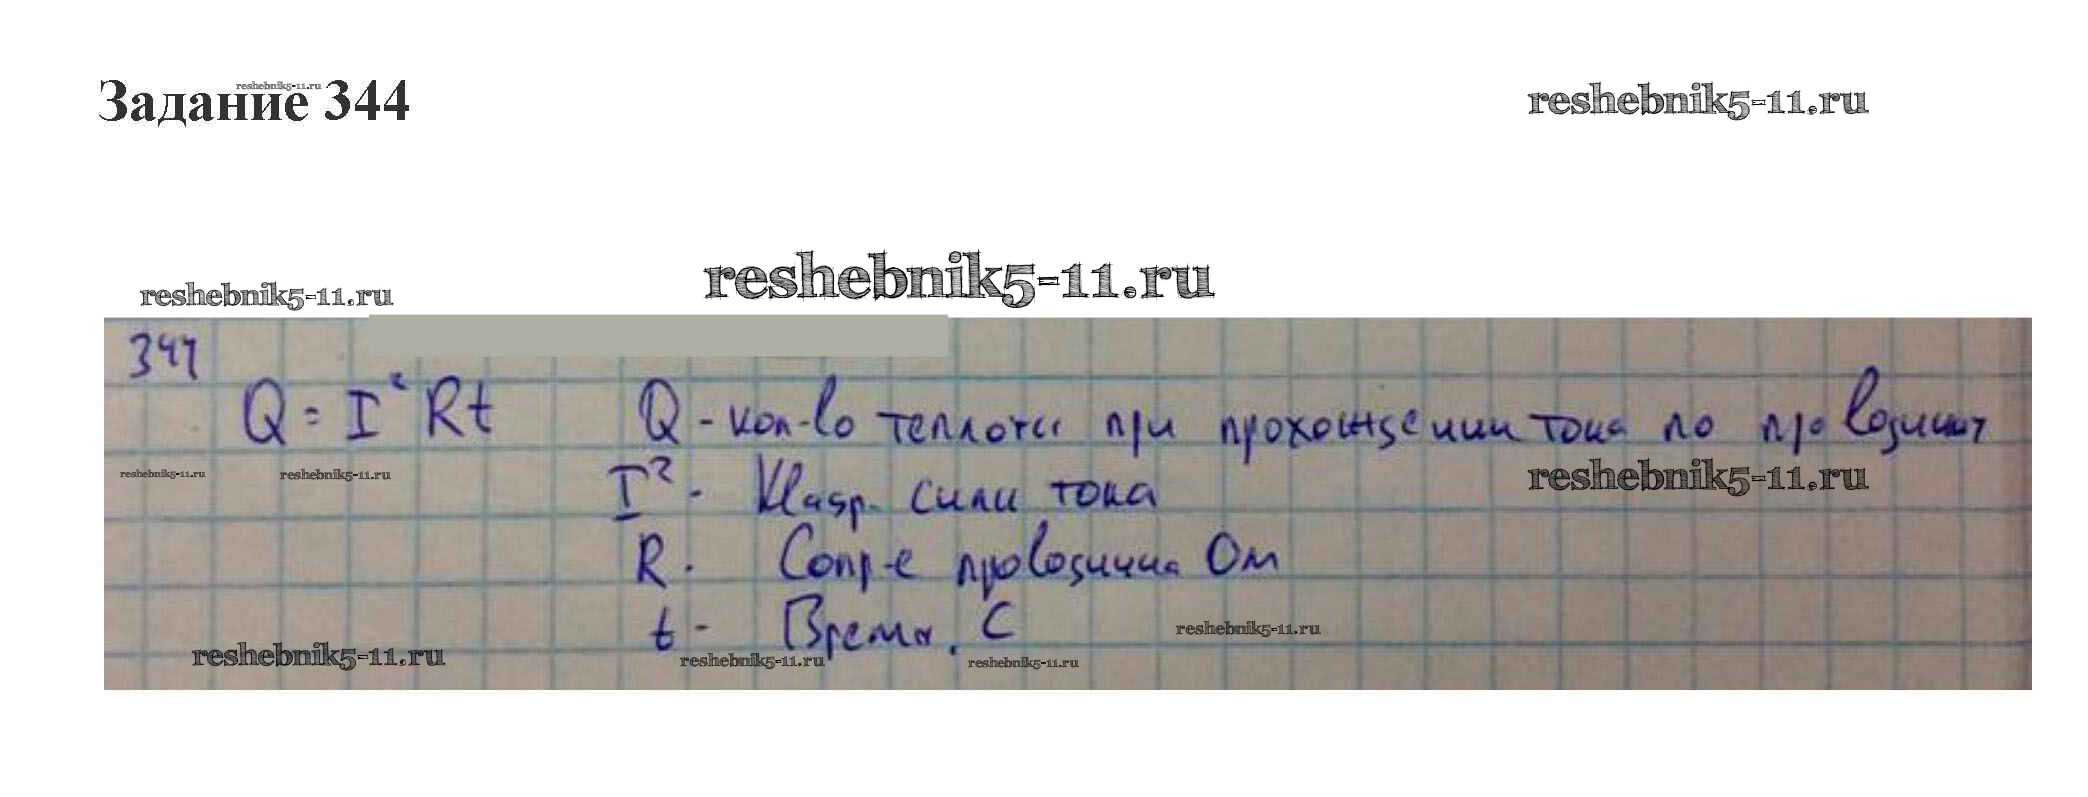 Задание 344
reshebnik5-11.ru
reshebnik5-11.ru
reshebnik5-11.ru
reshebnik5-11.ru
344
Q = I² Rt
Q - кол-во теплоты при прохождении тока по
reshebnik5-11.ru
reshebnik5-11.ru
reshebnik5-11.ru
I² - Квадр. силы тока
R - Сопр-е проводника Ом
t - Время, С
reshebnik5-11.ru
reshebnik5-11.ru
reshebnik5-11.ru
reshebnik5-11.ru